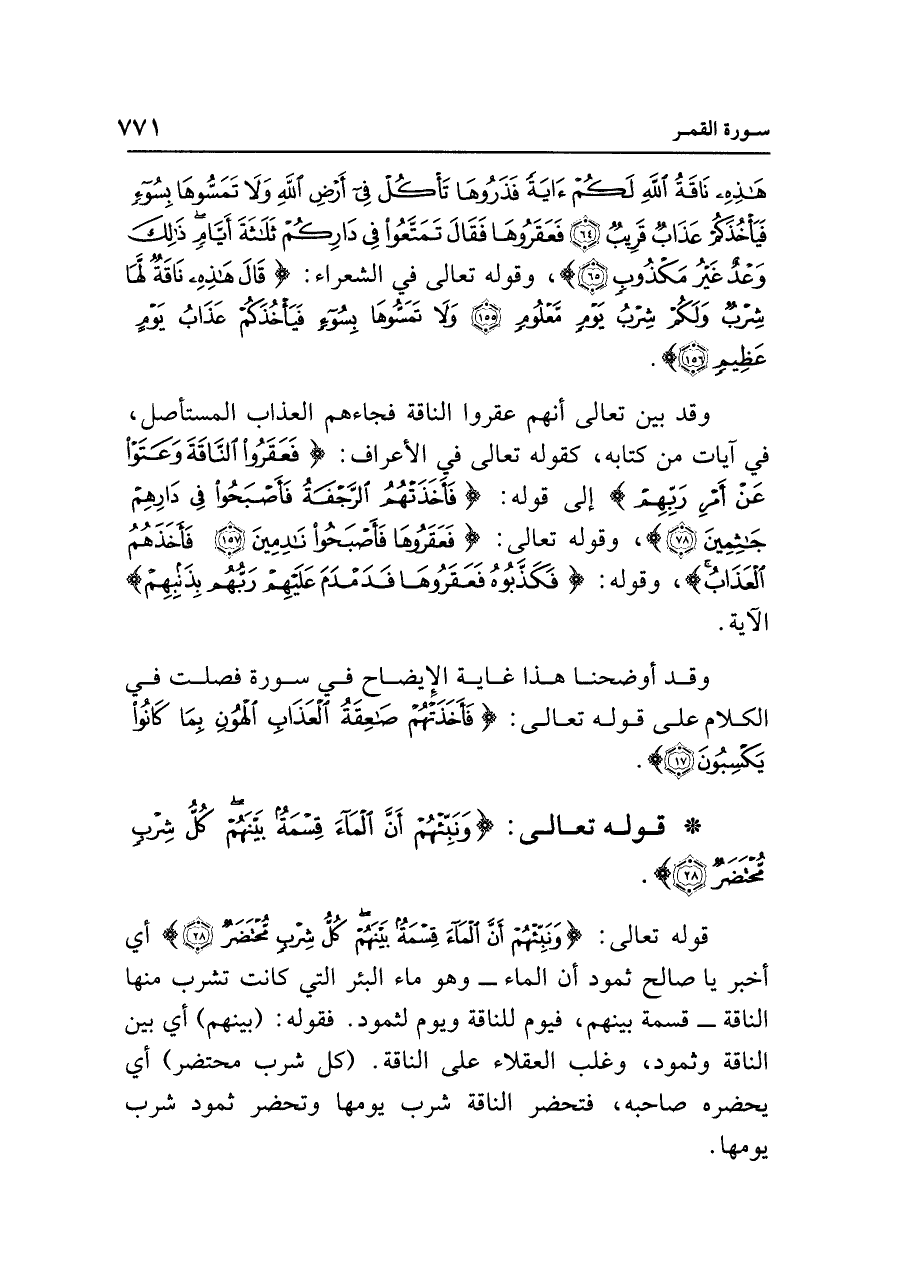 سورة القمر ٧٧١
هَٰذِهِۦ نَاقَةُ ٱللَّهِ لَكُمْ ءَايَةً فَذَرُوهَا تَأْكُلْ فِىٓ أَرْضِ ٱللَّهِ وَلَا تَمَسُّوهَا بِسُوٓءٍ
فَيَأْخُذَكُمْ عَذَابٌ قَرِيبٌ ﴿٦٤﴾ فَعَقَرُوهَا فَقَالَ تَمَتَّعُوا۟ فِى دَارِكُمْ ثَلَٰثَةَ أَيَّامٍ ۖ ذَٰلِكَ
وَعْدٌ غَيْرُ مَكْذُوبٍ ﴿٦٥﴾﴾، وقوله تعالى في الشعراء: ﴿قَالَ هَٰذِهِۦ نَاقَةٌ لَّهَا
شِرْبٌ وَلَكُمْ شِرْبُ يَوْمٍ مَّعْلُومٍ ﴿١٥٥﴾ وَلَا تَمَسُّوهَا بِسُوٓءٍ فَيَأْخُذَكُمْ عَذَابُ يَوْمٍ
عَظِيمٍ ﴿١٥٦﴾﴾.
وقد بين تعالى أنهم عقروا الناقة فجاءهم العذاب المستأصل،
في آيات من كتابه، كقوله تعالى في الأعراف: ﴿فَعَقَرُوا۟ ٱلنَّاقَةَ وَعَتَوْا۟
عَنْ أَمْرِ رَبِّهِمْ﴾ إلى قوله: ﴿فَأَخَذَتْهُمُ ٱلرَّجْفَةُ فَأَصْبَحُوا۟ فِى دَارِهِمْ
جَٰثِمِينَ ﴿٧٨﴾﴾، وقوله تعالى: ﴿فَعَقَرُوهَا فَأَصْبَحُوا۟ نَٰدِمِينَ ﴿١٥٧﴾ فَأَخَذَهُمُ
ٱلْعَذَابُ ۚ﴾، وقوله: ﴿فَكَذَّبُوهُ فَعَقَرُوهَا فَدَمْدَمَ عَلَيْهِمْ رَبُّهُم بِذَنۢبِهِمْ﴾
الآية.
وقد أوضحنا هذا غاية الإيضاح في سورة فصلت في
الكلام على قوله تعالى: ﴿فَأَخَذَتْهُمْ صَٰعِقَةُ ٱلْعَذَابِ ٱلْهُونِ بِمَا كَانُوا۟
يَكْسِبُونَ ﴿١٧﴾﴾.
* قوله تعالى: ﴿وَنَبِّئْهُمْ أَنَّ ٱلْمَآءَ قِسْمَةٌۢ بَيْنَهُمْ ۖ كُلُّ شِرْبٍ
مُّحْتَضَرٌ ﴿٢٨﴾﴾.
قوله تعالى: ﴿وَنَبِّئْهُمْ أَنَّ ٱلْمَآءَ قِسْمَةٌۢ بَيْنَهُمْ ۖ كُلُّ شِرْبٍ مُّحْتَضَرٌ ﴿٢٨﴾﴾ أي
أخبر يا صالح ثمود أن الماء ــ وهو ماء البئر التي كانت تشرب منها
الناقة ــ قسمة بينهم، فيوم للناقة ويوم لثمود. فقوله: (بينهم) أي بين
الناقة وثمود، وغلب العقلاء على الناقة. (كل شرب محتضر) أي
يحضره صاحبه، فتحضر الناقة شرب يومها وتحضر ثمود شرب
يومها.